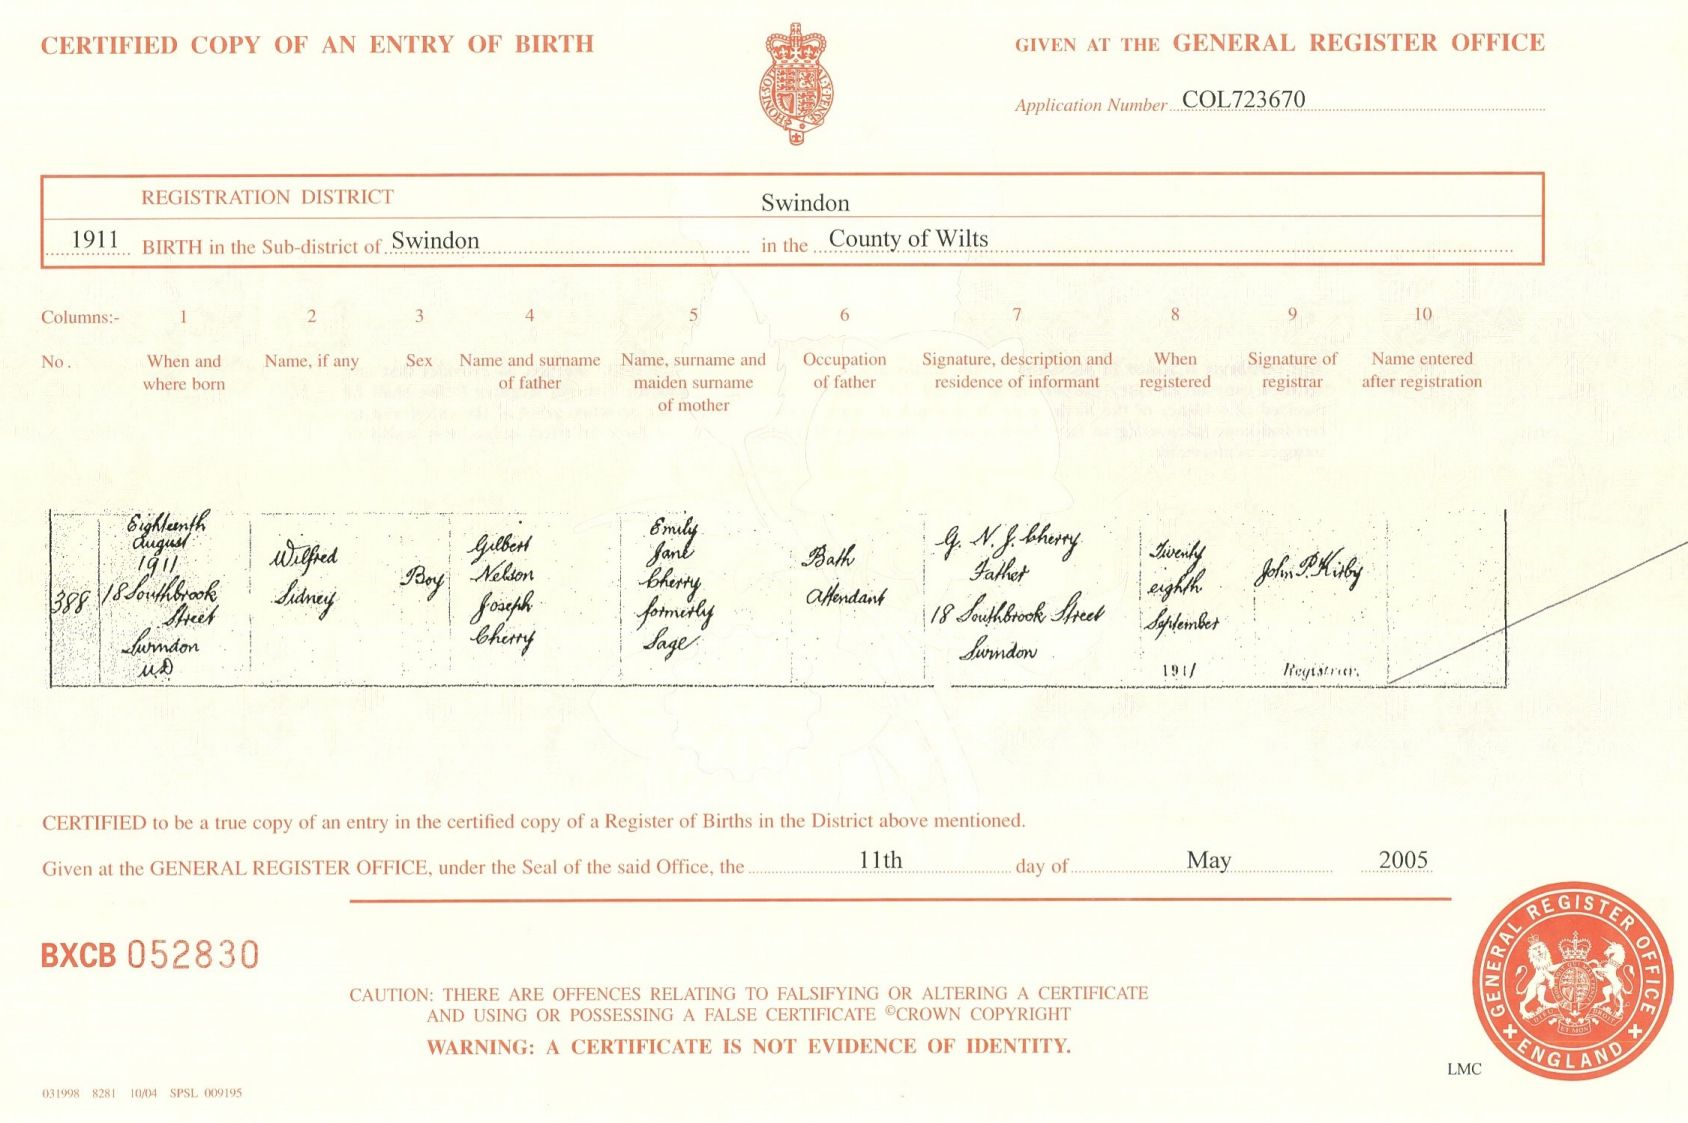 CERTIFIED COPY OF AN ENTRY OF BIRTH
GIVEN AT THE GENERAL REGISTER OFFICE
Application Number COL723670
REGISTRATION DISTRICT Swindon
1911 BIRTH in the Sub-district of Swindon in the County of Wilts
Columns:- 1 2 3 4 5 6 7 8 9 10
No.
When and
where born
Name, if any
Sex
Name and surname
of father
Name, surname and
maiden surname
of mother
Occupation
of father
Signature, description and
residence of informant
When
registered
Signature of
registrar
Name entered
after registration
388
Eighteenth
August
1911
18 Southbrook
Street
Swindon
U.D
Wilfred
Sidney
Boy
Gilbert
Nelson
Joseph
Cherry
Emily
Jane
Cherry
formerly
Sage
Bath
Attendant
G. N. J. Cherry
Father
18 Southbrook Street
Swindon
Twenty
eighth
September
1911
John P. Kirby
Registrar.
CERTIFIED to be a true copy of an entry in the certified copy of a Register of Births in the District above mentioned.
Given at the GENERAL REGISTER OFFICE, under the Seal of the said Office, the 11th day of May 2005
BXCB 052830
CAUTION: THERE ARE OFFENCES RELATING TO FALSIFYING OR ALTERING A CERTIFICATE
AND USING OR POSSESSING A FALSE CERTIFICATE ©CROWN COPYRIGHT
WARNING: A CERTIFICATE IS NOT EVIDENCE OF IDENTITY.
GENERAL REGISTER OFFICE
ENGLAND
LMC
031998 8281 10/04 SPSL 009195